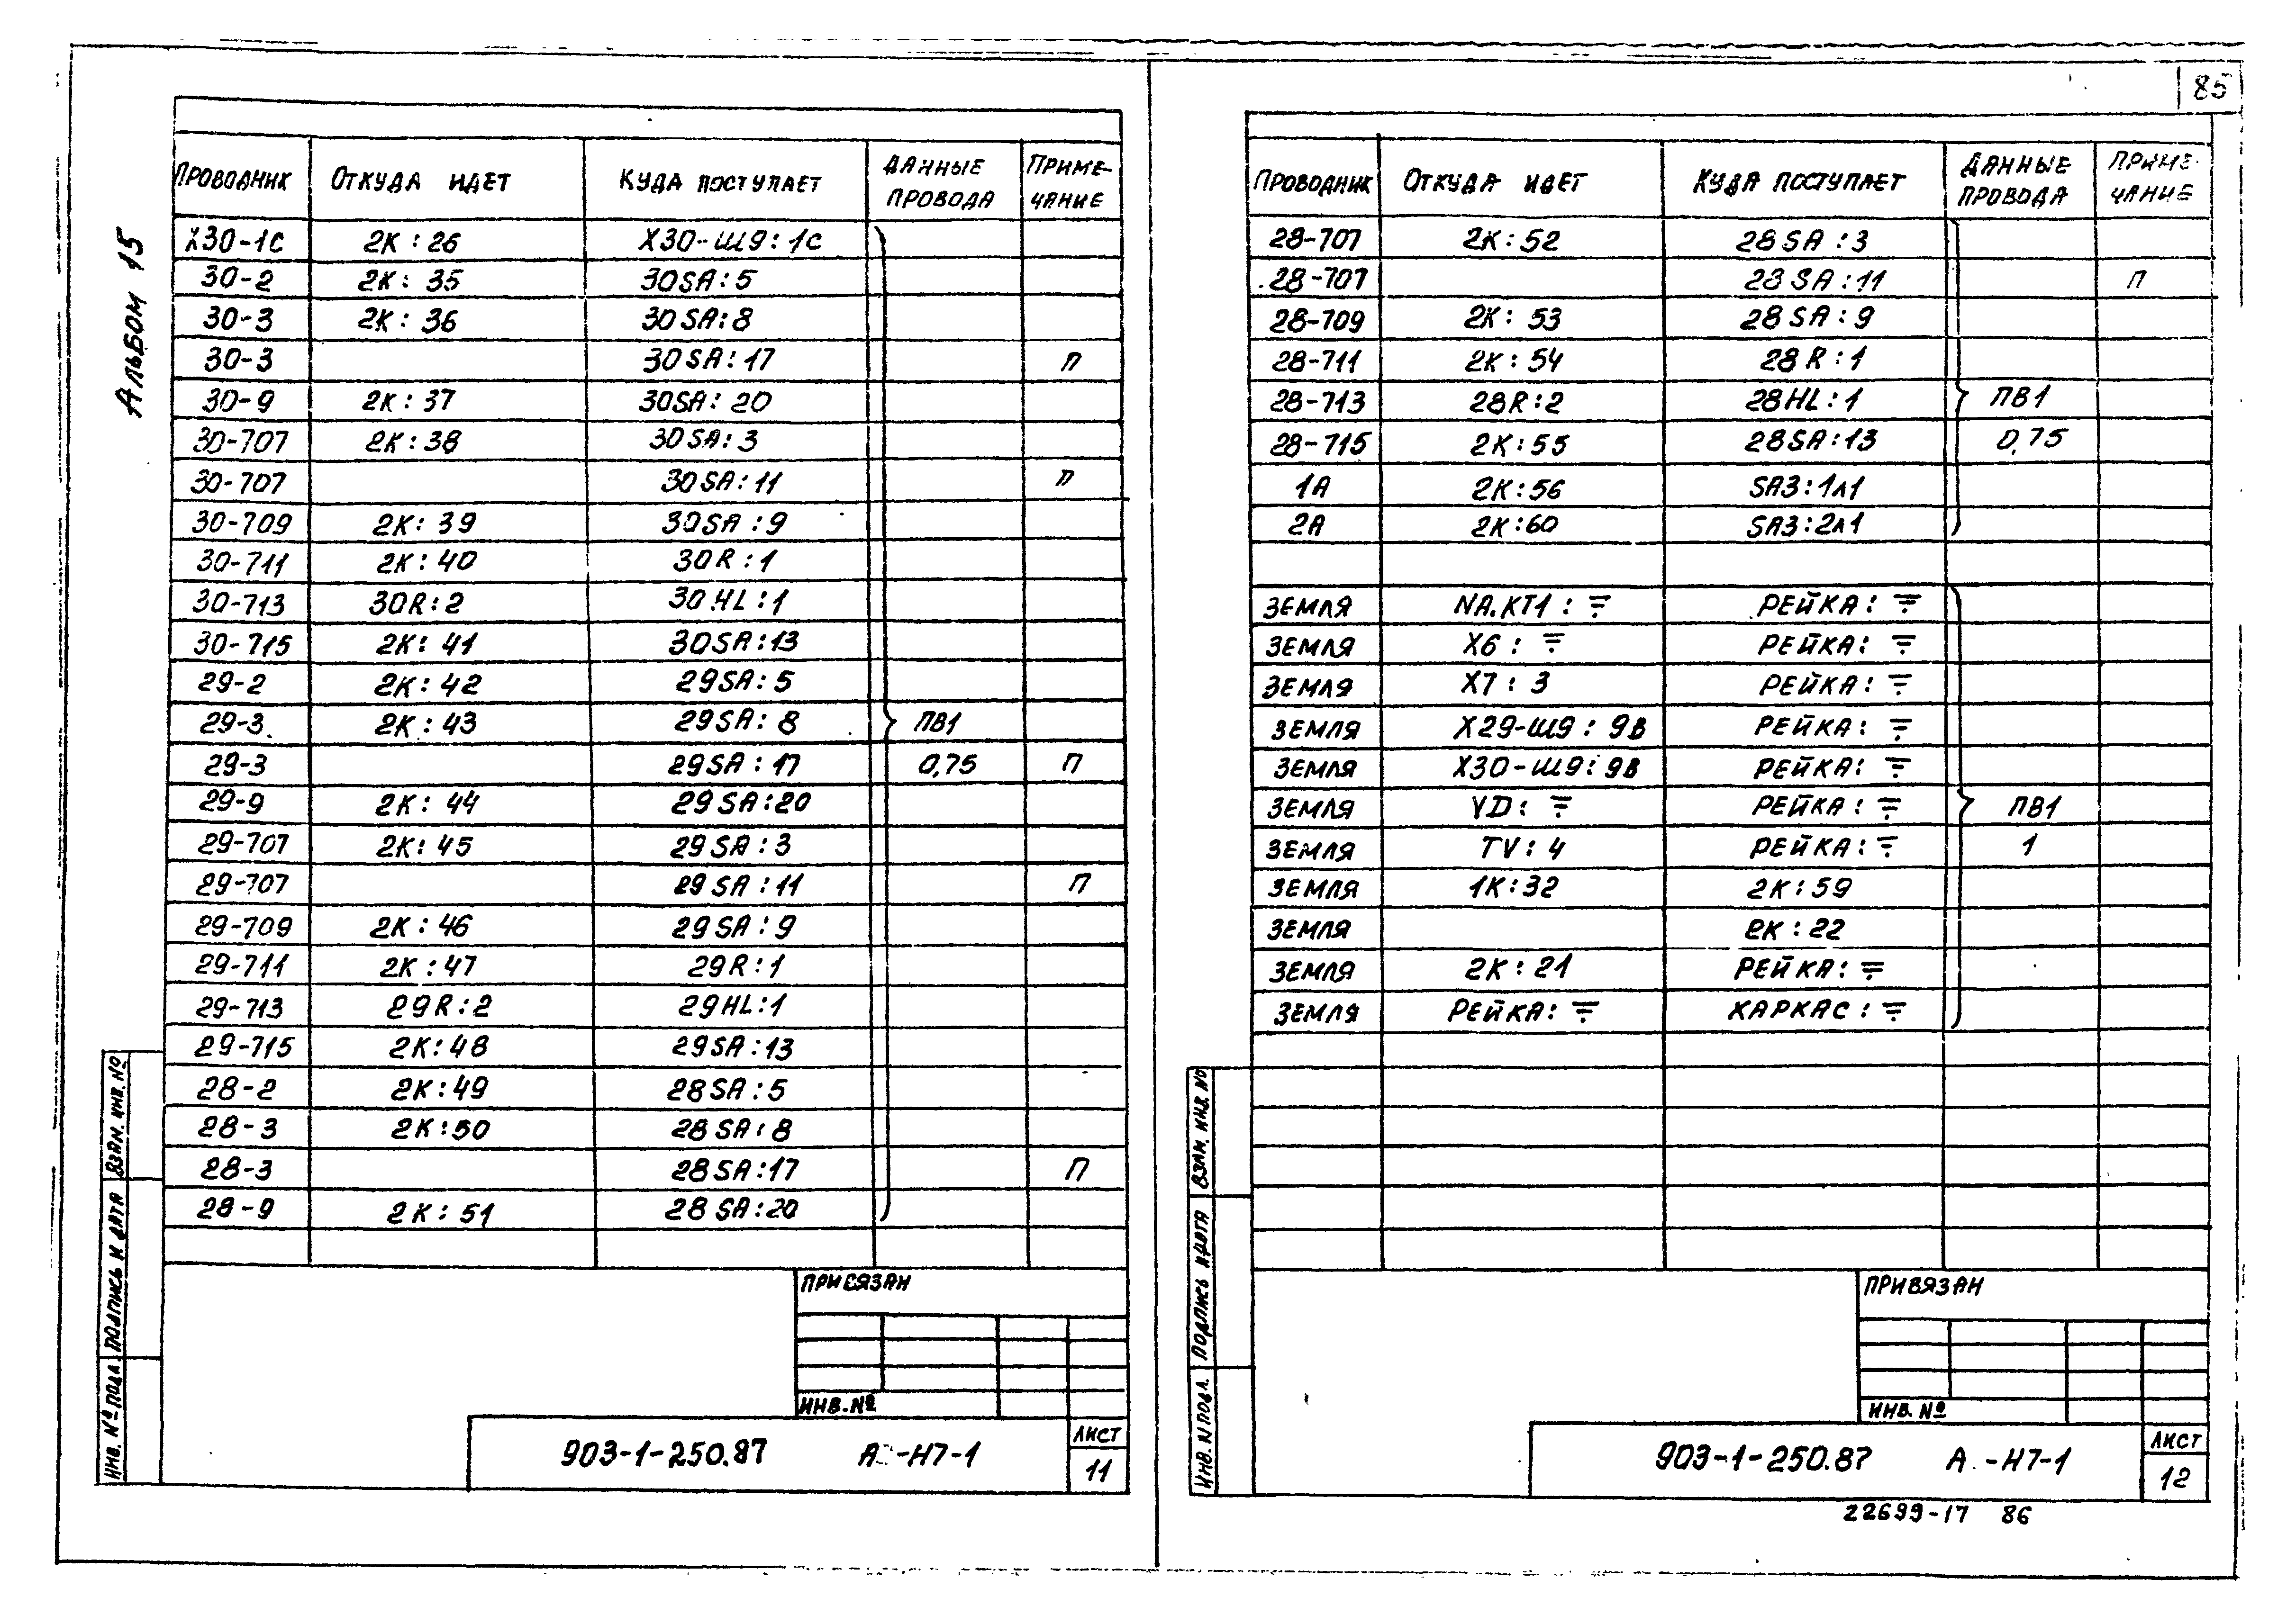 85
Альбом 15
Проводник Откуда идет Куда поступает Данные провода Примечание
Х30-1С 2К:26 Х30-Ш9:1С
30-2 2К:35 30SA:5
30-3 2К:36 30SA:8
30-3 30SA:17 П
30-9 2К:37 30SA:20
30-707 2К:38 30SA:3
30-707 30SA:11 П
30-709 2К:39 30SA:9
30-711 2К:40 30R:1
30-713 30R:2 30HL:1
30-715 2К:41 30SA:13
29-2 2К:42 29SA:5
29-3 2К:43 29SA:8 ПВ1
29-3 29SA:17 0,75 П
29-9 2К:44 29SA:20
29-707 2К:45 29SA:3
29-707 29SA:11 П
29-709 2К:46 29SA:9
29-711 2К:47 29R:1
29-713 29R:2 29HL:1
29-715 2К:48 29SA:13
28-2 2К:49 28SA:5
28-3 2К:50 28SA:8
28-3 28SA:17 П
28-9 2К:51 28SA:20
Привязан
Инв. №
903-1-250.87 А -Н7-1
Лист
11
Инв. № подл. Подпись и дата Взам. инв. №
Проводник Откуда идет Куда поступает Данные провода Примечание
28-707 2К:52 28SA:3
28-707 28SA:11 П
28-709 2К:53 28SA:9
28-711 2К:54 28R:1
28-713 28R:2 28HL:1 ПВ1
28-715 2К:55 28SA:13 0,75
1А 2К:56 SA3:1Л1
2А 2К:60 SA3:2Л1
Земля NA.KT1: ⏚ Рейка: ⏚
Земля Х6: ⏚ Рейка: ⏚
Земля Х7:3 Рейка: ⏚
Земля Х29-Ш9:9В Рейка: ⏚
Земля Х30-Ш9:9В Рейка: ⏚
Земля YD: ⏚ Рейка: ⏚ ПВ1
Земля TV:4 Рейка: ⏚ 1
Земля 1К:32 2К:59
Земля 2К:22
Земля 2К:21 Рейка: ⏚
Земля Рейка: ⏚ Каркас: ⏚
Привязан
Инв. №
903-1-250.87 А -Н7-1
Лист
12
Инв. № подл. Подпись и дата Взам. инв. №
22699-17 86